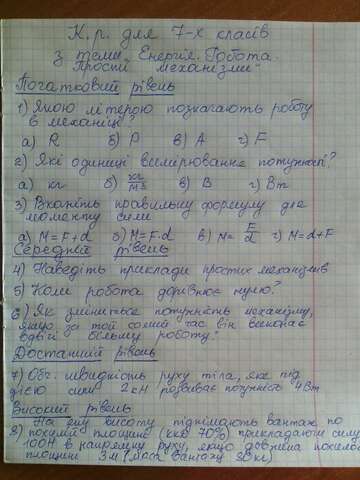 К.р. для 7-х класів
з теми "Енергія. Робота.
Прості механізми"
Початковий рівень
1) Якою літерою позначають роботу
в механіці?
а) R б) P в) A г) F
2) Які одиниці вимірювання потужності?
а) кг б) кг/м3 в) В г) Вт
3) Вкажіть правильну формулу для
моменту сили
а) M=F+d б) M=F·d в) M=F/d г) M=d+F
Середній рівень
4) Наведіть приклади простих механізмів
5) Коли робота дорівнює нулю?
6) Як зміниться потужність механізму,
якщо за той самий час він виконає
вдвічі більшу роботу?
Достатній рівень
7) Обч. швидкість руху тіла, яке під
дією сили 2кН розвиває потужність 4Вт
Високий рівень
На яку висоту піднімають вантаж по
8) похилій площині (ккд 70%) прикладаючи силу
100Н в напрямку руху, якщо довжина похилої
площини 3м (маса вантажу 30кг)